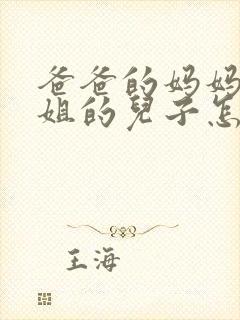 爸爸的妈妈
姐的兒子怎
王海